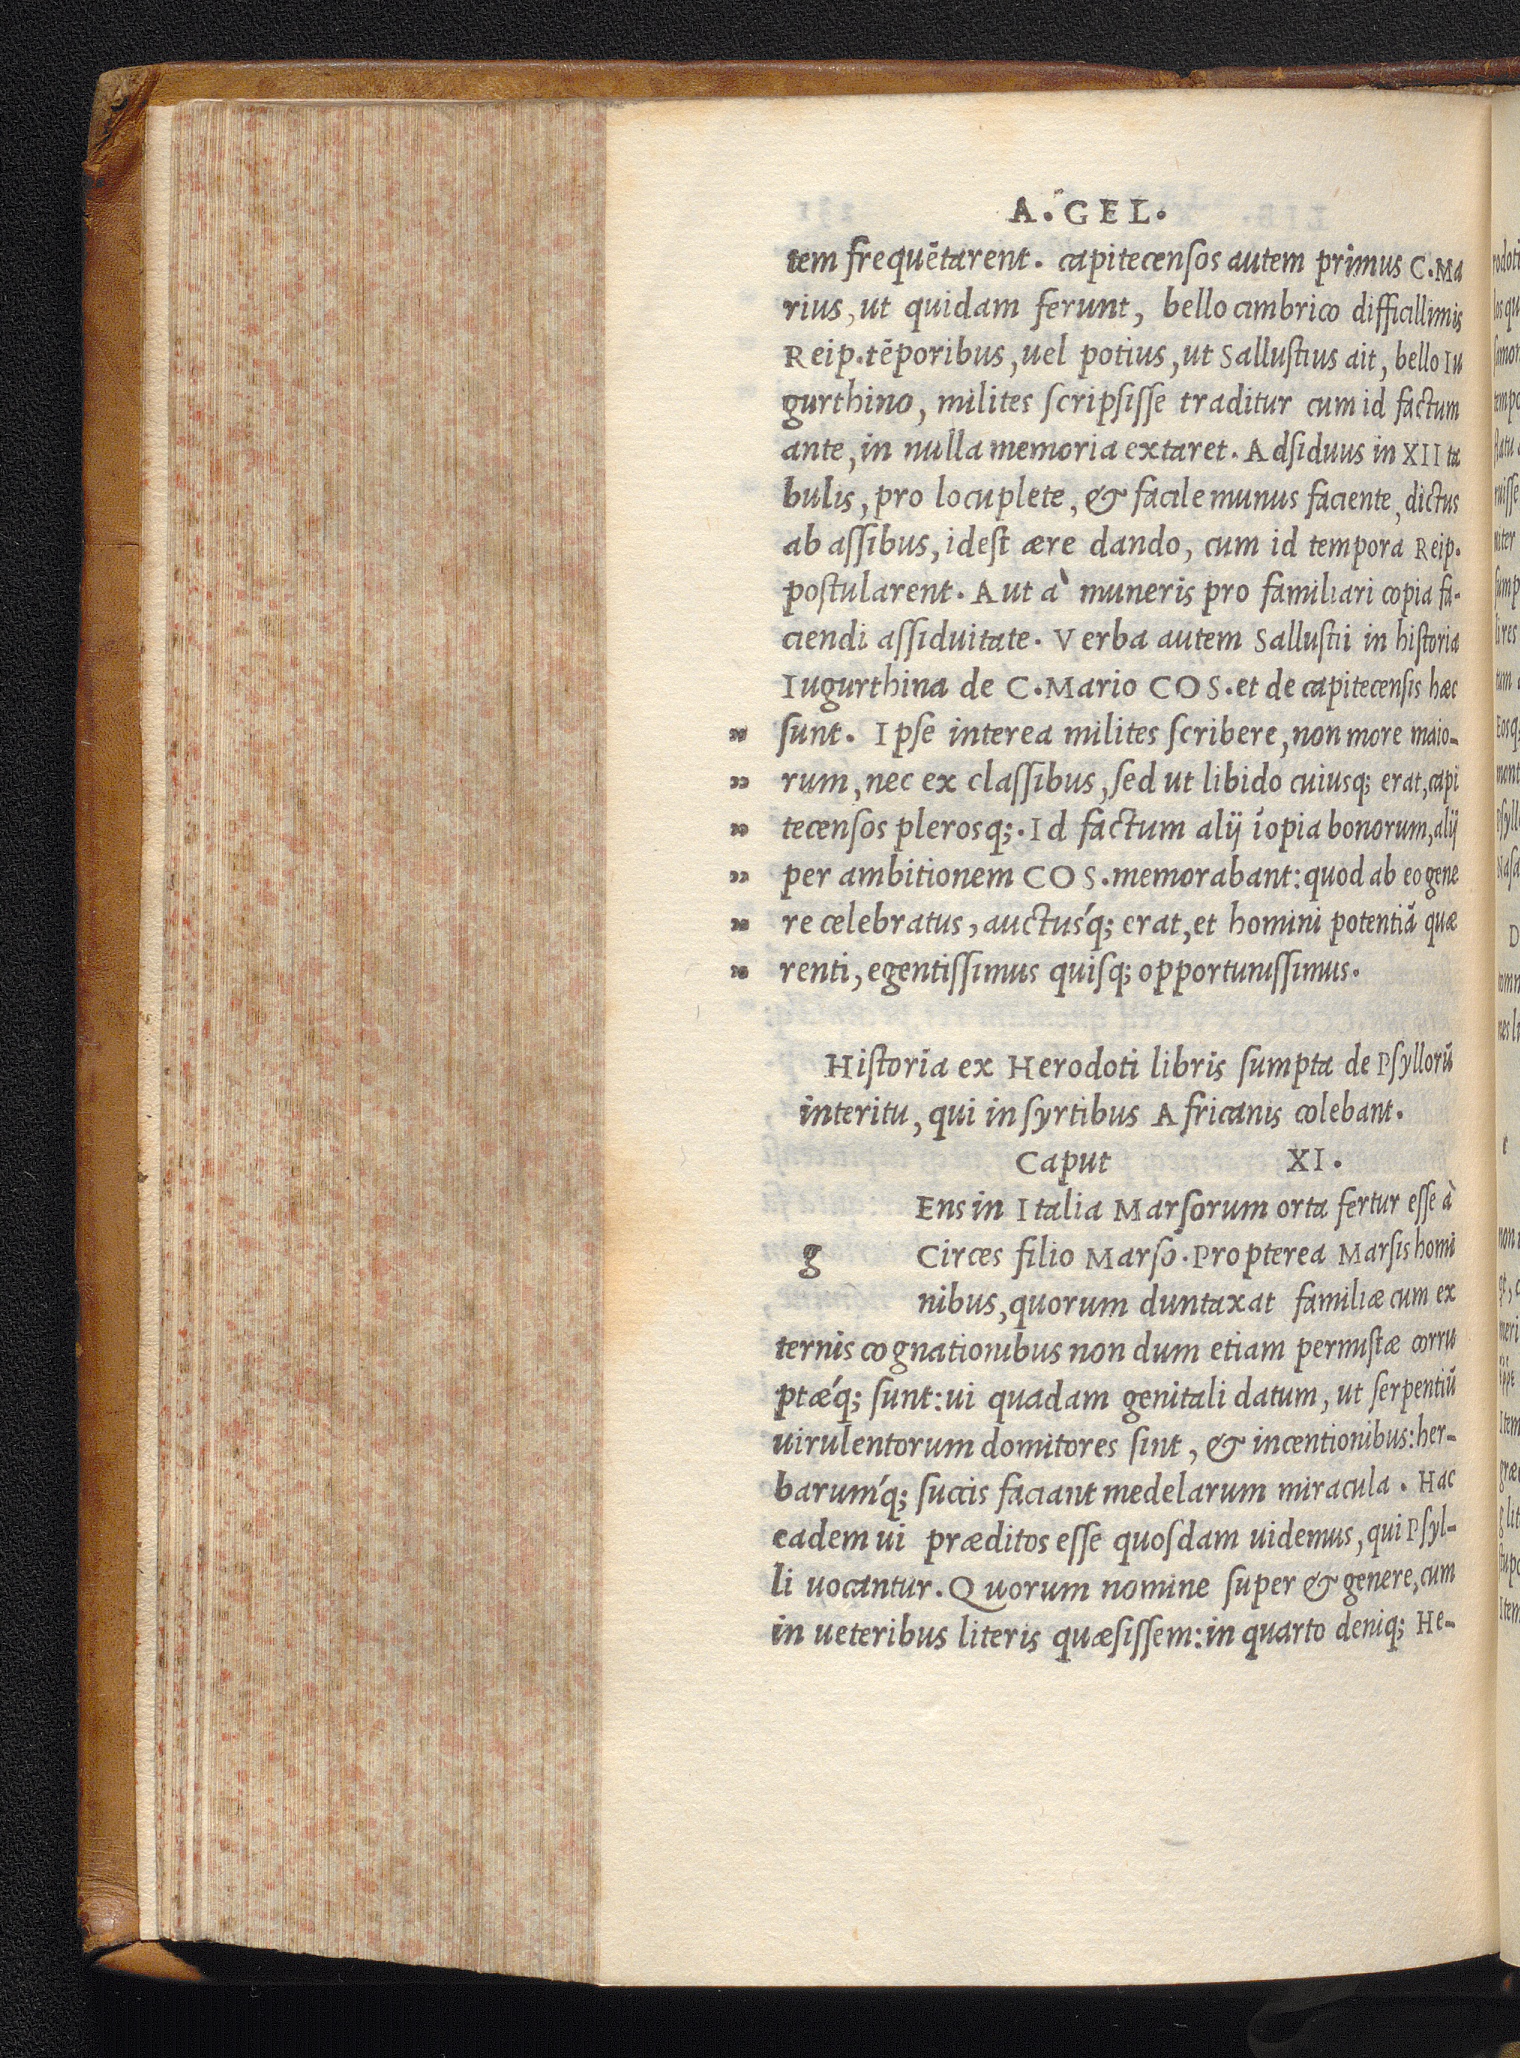 A. GEL.
tem frequētarent. capitecensos autem primus C.Ma
rius, ut quidam ferunt, bello cimbrico difficillimis
Reip.tēporibus, uel potius, ut Sallustius ait, bello Iu
gurthino, milites scripsisse traditur cum id factum
ante, in nulla memoria extaret. Adsiduus in XII ta
bulis, pro locuplete, & facile munus faciente, dictus
ab assibus, idest ære dando, cum id tempora Reip.
postularent. Aut à muneris pro familiari copia fa-
ciendi assiduitate. Verba autem Sallustii in historia
Iugurthina de C.Mario COS.et de capitecensis hæc
” sunt. Ipse interea milites scribere, non more maio-
” rum, nec ex classibus, sed ut libido cuiusq; erat, capi
” tecensos plerosq;. Id factum alij īopia bonorum, alij
” per ambitionem COS.memorabant: quod ab eo gene
” re celebratus, auctusq́; erat, et homini potentiā quæ
” renti, egentissimus quisq; opportunissimus.
Historia ex Herodoti libris sumpta de Psyllorū
interitu, qui in syrtibus Africanis colebant.
Caput XI.
Ens in Italia Marsorum orta fertur esse à
g Circes filio Marso. Propterea Marsis homi
nibus, quorum duntaxat familiæ cum ex
ternis cognationibus non dum etiam permistæ corru
ptæq́; sunt: ui quadam genitali datum, ut serpentiū
uirulentorum domitores sint, & incentionibus: her-
barumq́; succis faciant medelarum miracula. Hac
eadem ui præditos esse quosdam uidemus, qui Psyl-
li uocantur. Quorum nomine super & genere, cum
in ueteribus literis quæsissem: in quarto deniq; He-